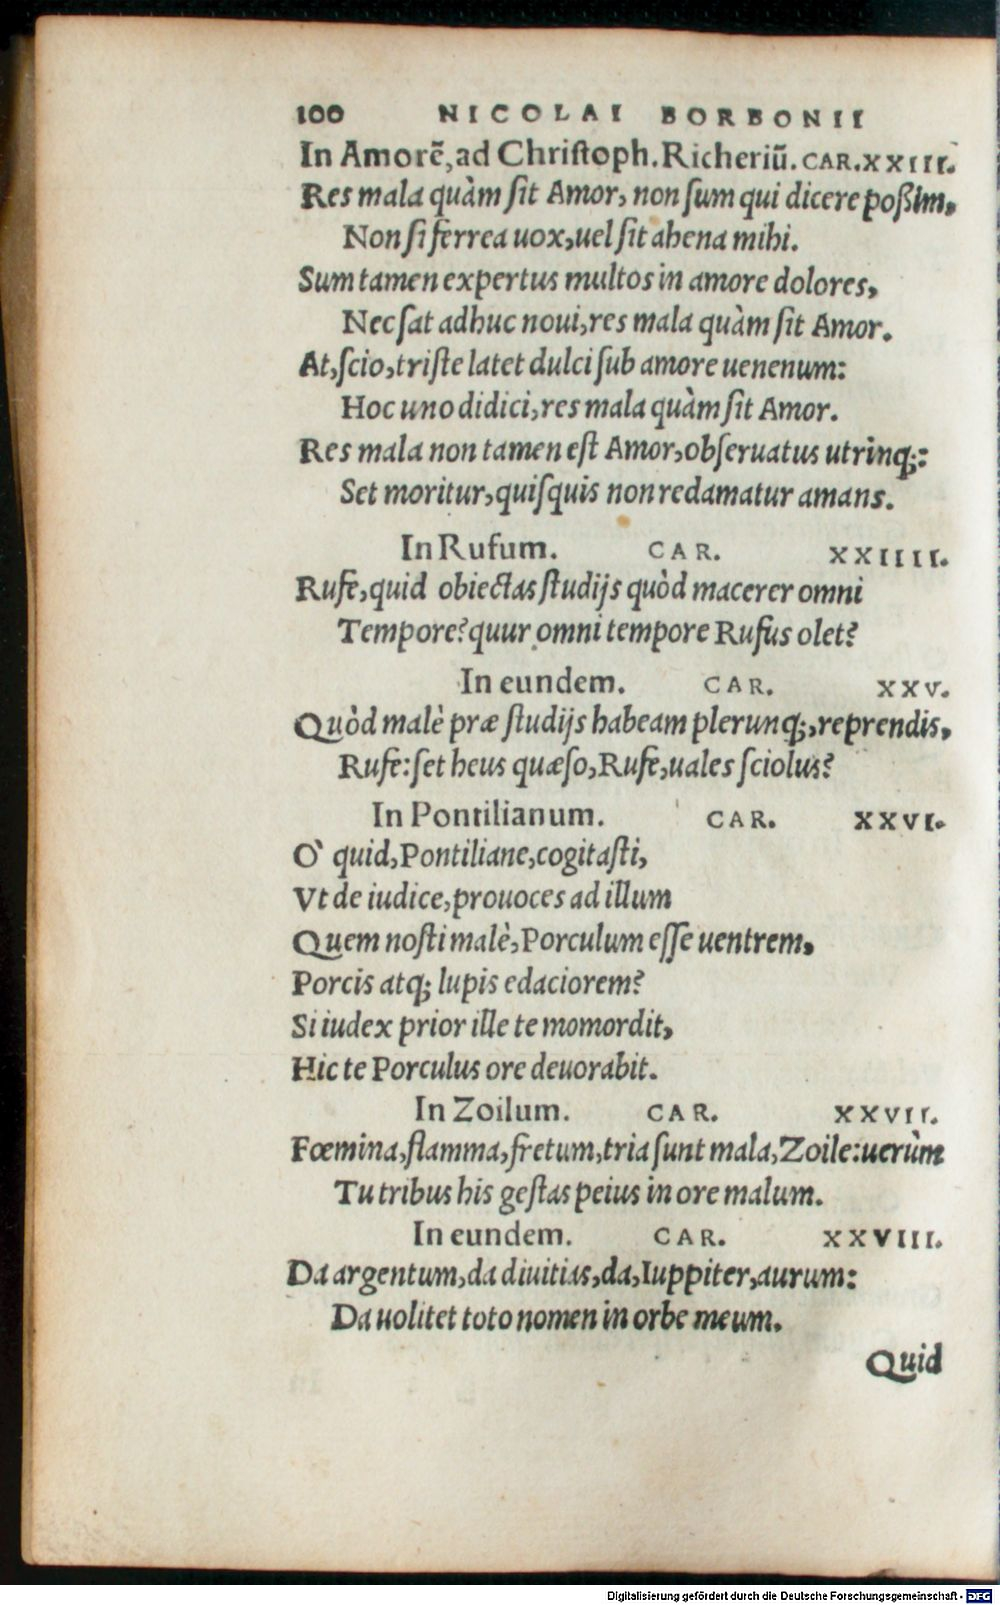 100 NICOLAI BORBONII
In Amorē, ad Christoph. Richeriū. CAR. XXIII.
Res mala quàm ſit Amor, non ſum qui dicere poßim,
Non ſi ferrea uox, uel ſit ahena mihi.
Sum tamen expertus multos in amore dolores,
Nec ſat adhuc noui, res mala quàm ſit Amor.
At, ſcio, triſte latet dulci ſub amore uenenum:
Hoc uno didici, res mala quàm ſit Amor.
Res mala non tamen eſt Amor, obſeruatus utrinq;:
Set moritur, quiſquis non redamatur amans.
In Rufum. CAR. XXIIII.
Rufe, quid obiectas ſtudijs quòd macerer omni
Tempore? quur omni tempore Rufus olet?
In eundem. CAR. XXV.
Quòd malè præ ſtudijs habeam plerunq;, reprendis,
Rufe: ſet heus quæſo, Rufe, uales ſciolus?
In Pontilianum. CAR. XXVI.
O` quid, Pontiliane, cogitaſti,
Vt de iudice, prouoces ad illum
Quem noſti malè, Porculum eſſe uentrem,
Porcis atq; lupis edaciorem?
Si iudex prior ille te momordit,
Hic te Porculus ore deuorabit.
In Zoilum. CAR. XXVII.
Fœmina, flamma, fretum, tria ſunt mala, Zoile: uerùm
Tu tribus his geſtas peius in ore malum.
In eundem. CAR. XXVIII.
Da argentum, da diuitias, da, Iuppiter, aurum:
Da uolitet toto nomen in orbe meum.
Quid
Digitalisierung gefördert durch die Deutsche Forschungsgemeinschaft - DFG